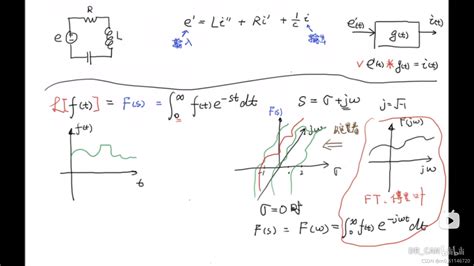 R
e
L
C
e' = Li'' + Ri' + 1/c i
输入
输出
e'(t)
g(t)
i(t)
√ e'(t) * g(t) = i(t)
L[f(t)] = F(s) = ∫₀^∞ f(t) e^-st dt
s = σ + jω
j = √-1
f(t)
t
F(s)
jω
-1
1
2
σ
σ = 0 时
F(jω)
jω
FT. 傅里叶
F(s) = F(ω) = ∫₀^∞ f(t) e^-jωt dt